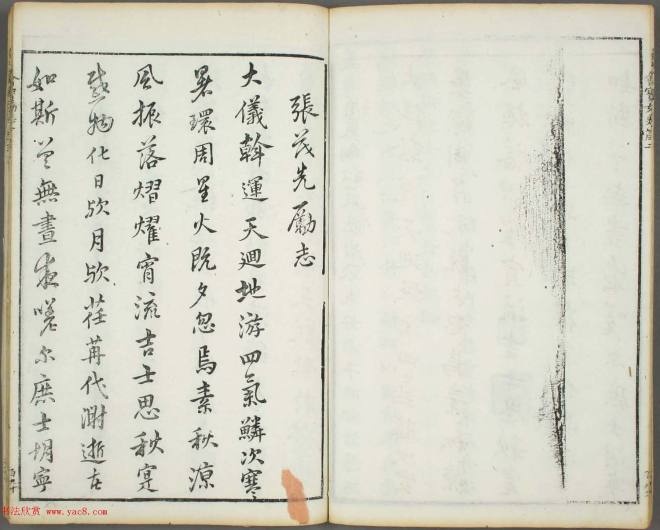 張茂先勵志
大儀斡運天迴地游四氣鱗次寒
暑環周星火既夕忽焉素秋涼
風振落熠燿宵流吉士思秋寔
感物化日歟月歟荏苒代謝逝者
如斯曾無晝夜嗟尔庶士胡寧
书法欣赏 www.yac8.com